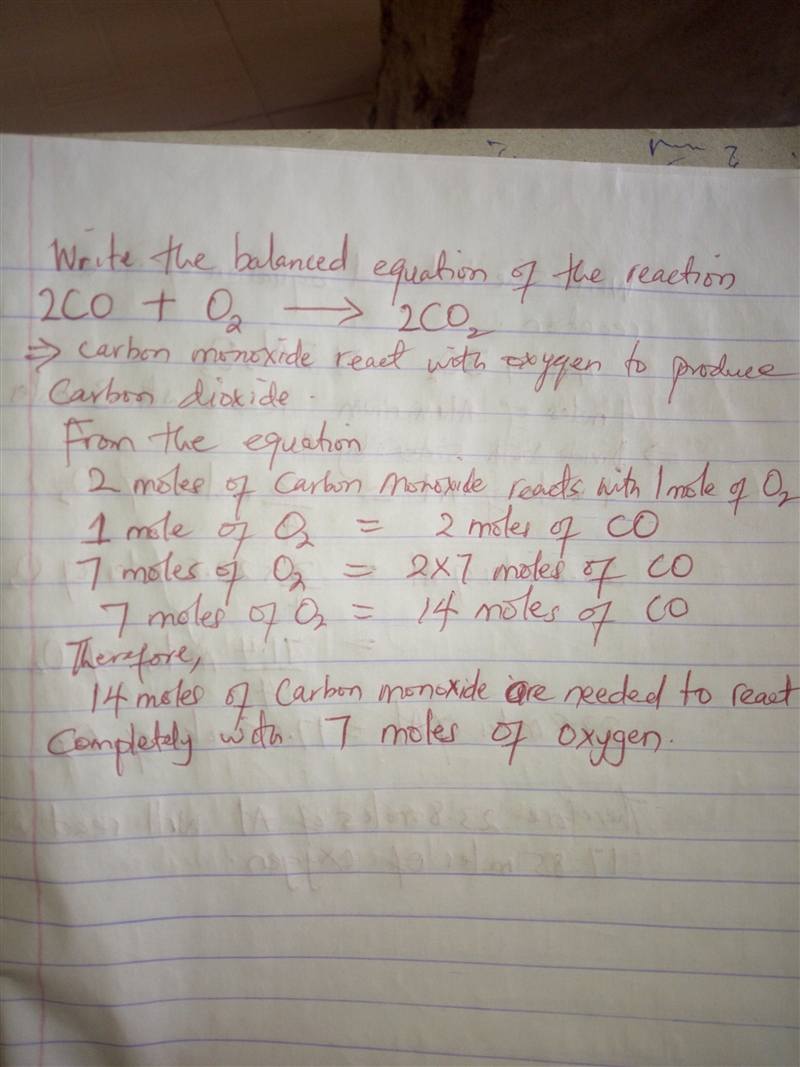 Write the balanced equation of the reaction
2CO + O₂ → 2CO₂
⇒ Carbon monoxide react with oxygen to produce
Carbon dioxide.
From the equation
2 moles of Carbon Monoxide reacts with 1 mole of O₂
1 mole of O₂ = 2 moles of CO
7 moles of O₂ = 2×7 moles of CO
7 moles of O₂ = 14 moles of CO
Therefore,
14 moles of Carbon monoxide are needed to react
Completely with 7 moles of oxygen.